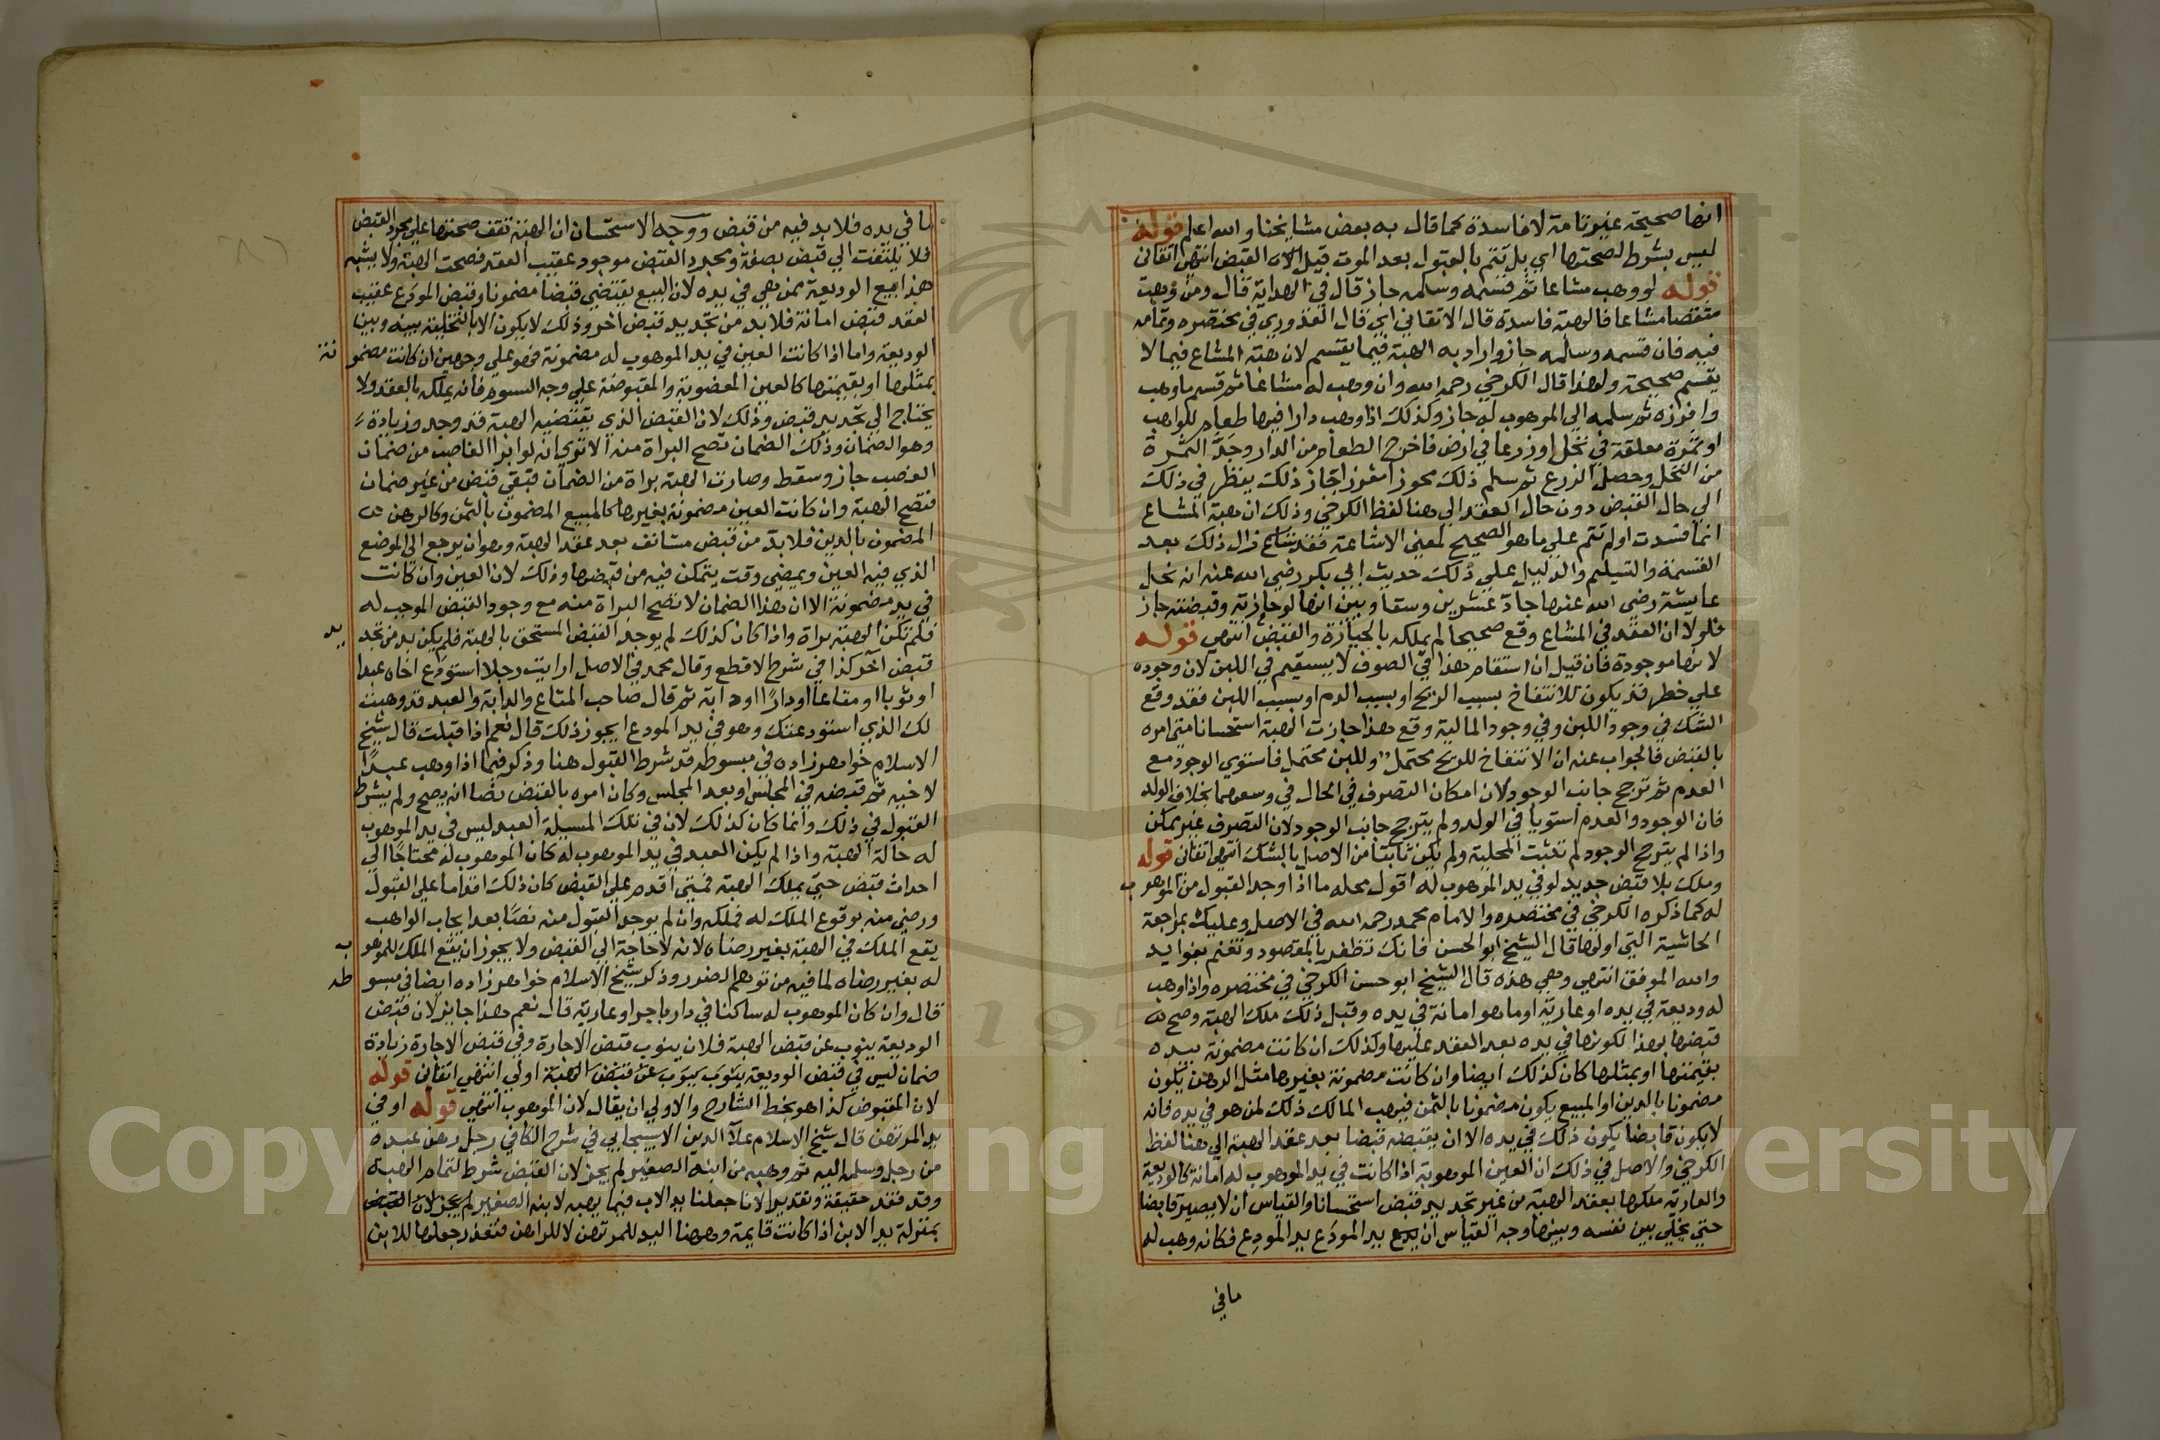 انها صحيحة غير تامة لا فاسدة كما قال به بعض مشايخنا والله اعلم قوله
ليس بشرط لصحتها اي بل تتم بالقبول بعد الموت قبل القبض انتهى اتقاني
قوله لو وهب مشاعا ثم قسمه وسلمه جاز قال في الهداية قال ومن وهب
شقصا مشاعا فالهبة فاسدة قال الاتقاني اي قال القدوري في مختصره وتمامه
فيه فان قسمه وسلمه جاز واراد به الهبة فيما يقسم لان هبة المشاع فيما لا
يقسم صحيحة ولهذا قال الكرخي رحمه الله وان وهب له مشاعا ثم قسم ما وهب
وافرزه ثم سلمه الي الموهوب له جاز وكذلك اذا وهب دارا فيها طعام للواهب
او ثمرة معلقة في نخل او زرعا في ارض فاخرج الطعام من الدار وجذ الثمرة
من النخل وحصل الزرع ثم سلم ذلك محوزا مفرزا جاز ذلك ينظر في ذلك
الي حال القبض دون حال العقد الي هنا لفظ الكرخي وذلك ان هبة المشاع
انما فسدت او لم تتم علي ما هو الصحيح لمعني الاشاعة فقد زال ذلك بعد
القسمة والتسليم والدليل علي ذلك حديث ابي بكر رضي الله عنه انه نحل
عايشة رضي الله عنها جاد عشرين وسقا وبين انها لو حازته وقبضته جاز
فلولا ان العقد في المشاع وقع صحيحا لم يملكه بالحيازة والقبض انتهي قوله
لانها موجودة فان قيل ان استقام هذا في الصوف لا يستقيم في اللبن لان وجوده
علي خطر قد يكون للانتفاخ بسبب الريح او بسبب الدم او بسبب اللبن فقد وقع
الشك في وجود اللبن وفي وجود المالية وقع هذا جازت الهبة استحسانا متي امره
بالقبض فالجواب عنه ان الانتفاخ للريح محتمل وللبن محتمل فاستوي الوجود مع
العدم ثم ترجح جانب الوجود لان امكان التصرف في الحال في وسعهما بخلاف الولد
فان الوجود والعدم استويا في الولد ولم يترجح جانب الوجود لان التصرف غير ممكن
واذا لم يترجح الوجود لم تثبت المحلية ولم يكن ثابتا من الاصل بالشك انتهي اتقاني قوله
وملك بلا قبض جديد لو في يد الموهوب له اقول محله ما اذا وجد القبول من الموهوب
له كما ذكره الكرخي في مختصره والامام محمد رحمه الله في الاصل وعليك بمراجعة
الحاشية التي اولها قال الشيخ ابو الحسن فانك تظفر بالمقصود وتغنم بفوايد
والله الموفق انتهي وهي هذه قال الشيخ ابو حسن الكرخي في مختصره واذا وهب
له وديعة في يده او عارية او ما هو امانة في يده وقبل ذلك ملك الهبة وصح له
قبضها بهذا لكونها في يده بعد العقد عليها وكذلك ان كانت مضمونة بيده
بقيمتها او بمثلها كان كذلك ايضا وان كانت مضمونة بغيرها مثل الرهن يكون
مضمونا بالدين او المبيع يكون مضمونا بالثمن فيهب المالك ذلك لمن هو في يده فانه
لا يكون قابضا يكون ذلك في يده الا ان يقبضه قبضا بعد عقد الهبة الي هنا لفظ
الكرخي والاصل في ذلك ان العين الموهوبة اذا كانت في يد الموهوب له امانة كالوديعة
والعارية ملكها بعقد الهبة من غير تجديد قبض استحسانا والقياس ان لا يصير قابضا
حتي يخلي بين نفسه وبينها وجه القياس ان يد المودَع يد المودِع فكانه وهب له
ما في
ما في يده فلا بد فيه من قبض ووجه الاستحسان ان الهبة تقف صحتها علي مجرد القبض
فلا يلتفت الي قبض بصفة ومجرد القبض موجود عقيب العقد فصحت الهبة ولا يشبه
هذا بيع الوديعة ممن هي في يده لان البيع يقتضي قبضا مضمونا وقبض المودَع عقيب
العقد قبض امانة فلا بد من تجديد قبض آخر وذلك لا يكون الا بالتخلية بينه وبين
الوديعة واما اذا كانت العين في يد الموهوب له مضمونة فهو علي وجهين ان كانت مضمونة
بمثلها او بقيمتها كالعين المغصوبة والمقبوضة علي وجه السوم فانه يملكه بالعقد ولا
يحتاج الي تجديد قبض وذلك لان القبض الذي يقتضيه الهبة قد وجد وزيادة
وهو الضمان وذلك الضمان تصح البراة منه الا تري انه لو ابرا الغاصب من ضمان
الغصب جاز وسقط وصارت الهبة براة من الضمان فبقي قبض من غير ضمان
فتصح الهبة وان كانت العين مضمونة بغيرها كالمبيع المضمون بالثمن وكالرهن
المضمون بالدين فلا بد من قبض مستانف بعد عقد الهبة وهو ان يرجع الي الموضع
الذي فيه العين ويمضي وقت يتمكن فيه من قبضها وذلك لان العين وان كانت
في يد مضمونة الا ان هذا الضمان لا تصح البراة منه مع وجود القبض الموجب له
فلم تكن الهبة براة واذا كان كذلك لم يوجد القبض المستحق بالهبة فلم يكن بد من تجديد
قبض آخر كذا في شرح الاقطع وقال محمد في الاصل ارايت رجلا استودع اخاه عبدا
او ثوبا او متاعا او دارا او دابة ثم قال صاحب المتاع والدابة والعبد قد وهبت
لك الذي استودعتك وهو في يد المودع ايجوز ذلك قال نعم اذا قبلت قال شيخ
الاسلام خواهر زاده في مبسوطه قد شرط القبول هنا وذكر فيما اذا وهب عبدا
لاخيه ثم قبضه في المجلس او بعد المجلس وكان امره بالقبض نصا انه يصح ولم يشرط
القبول في ذلك وانما كان كذلك لان في تلك المسيلة العبد ليس في يد الموهوب
له حالة الهبة واذا لم يكن العبد في يد الموهوب له كان الموهوب له محتاجا الي
احداث قبض حتي يملك الهبة فمتي اقدم علي القبض كان ذلك اقداما علي القبول
ورضي منه بوقوع الملك له فملكه وان لم يوجد القبول منه نصا بعد ايجاب الواهب
يقع الملك في الهبة بغير رضاه لانه لا حاجة الي القبض ولا يجوز ان يقع الملك للموهوب
له بغير رضاه لما فيه من توهم الضرر وذكر شيخ الاسلام خواهر زاده ايضا في مبسوطه
قال وان كان الموهوب له ساكنا في دار باجر او عارية قال نعم هذا جايز لان قبض
الوديعة ينوب عن قبض الهبة فلان ينوب قبض الاجارة وفي قبض الاجارة زيادة
ضمان ليس في قبض الوديعة ينوب ينوب عن قبض الهبة اولي انتهي اتقاني قوله
لان المقبوض كذا هو بخط الشارح والاولي ان يقال لان الموهوب انتهي قوله او في
يد المرتهن قال شيخ الاسلام علا الدين الاسبيجابي في شرح الكافي رجل رهن عبده
من رجل وسلمه اليه ثم وهبه من ابنه الصغير لم يجز لان القبض شرط لتمام الهبة
وقد فقد حقيقة وتقديرا لانا جعلنا يد الاب فيما يهبه لابنه الصغير لم يجز لان القبض
بمنزلة يد الابن اذا كانت قايمة وههنا اليد للمرتهن لا للراهن فتعذر جعلها للابن